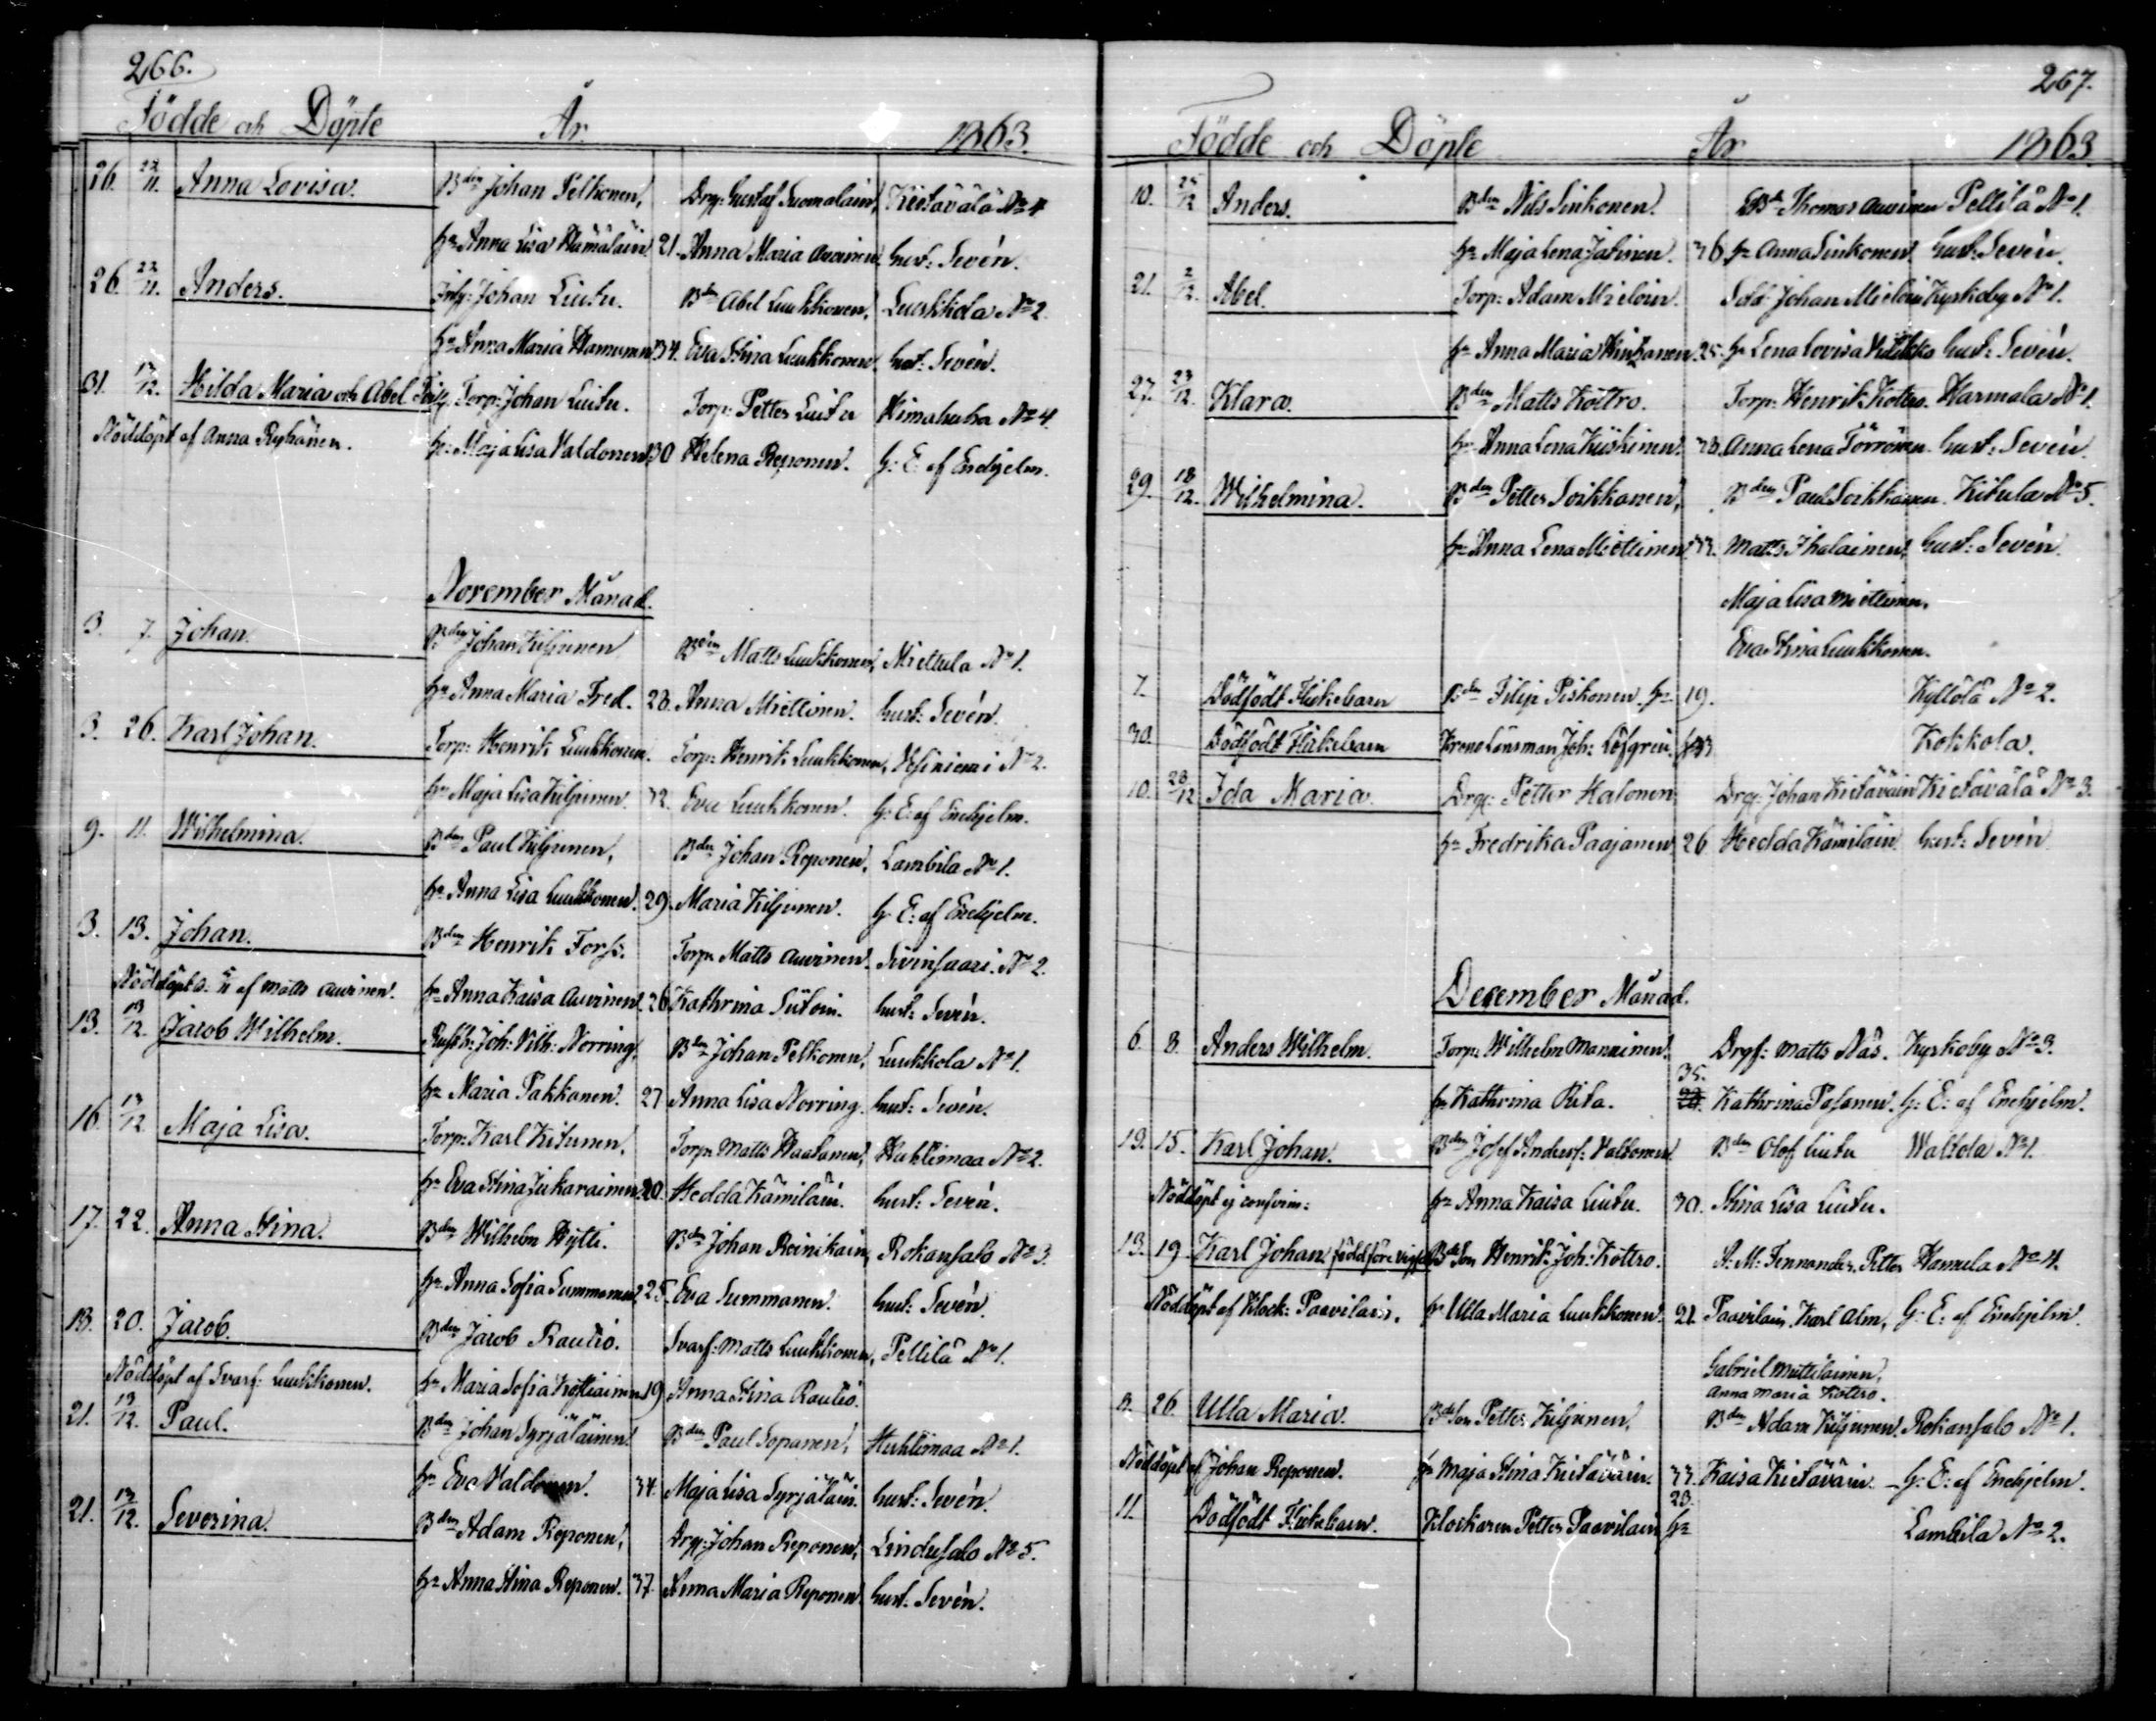 266.
Födde och Döpte År 1863.
26. 22/11. Anna Lovisa. Bden Johan Pelkonen, Drg: Gustaf Suomalain, Kietävälä No 4
hu Anna Lisa Hämäläin. 21. Anna Maria Auvinen. Gust: Sevén.
26. 22/11. Anders. Johan Liutu. Bden Abel Luukkonen, Luukkola No 2
hu Anna Maria 34. Eva Stina Luukkonen. Gust: Sevén.
31. 13/12. Hilda Maria och Abel Torp: Johan Liutu. Torp: Petter Liutu Himahuha No 4.
Nöddöpt af Anna Ryhänen. hu: Maja Lisa Valdonen 30 Helena Reponen. G: E: af Enehjelm.
November Månad.
3. 7. Johan. Bden Johan Kiljunen Bden Matts Luukkonen, Miettula No 1.
hu Anna Maria Fred. 28. Anna Miettinen. Gust: Sevén.
3. 26. Karl Johan. Torp: Henrik Luukkonen. Torp: Henrik Luukkonen, No 2.
hu Maja Lisa Kiljunen. 32. Eva Luukkonen. G: E: af Enehjelm.
9. 11. Wilhelmina. Bden Paul Kiljunen, Bden Johan Reponen, Lambila No 1.
hu Anna Lisa Luukkonen. 29. Maria Kiljunen. G: E: af Enehjelm.
3. 13. Johan. Bden Henrik Forss. Torp: Matts Auvinen. Sivinsaari. No 2.
Nöddöpt af Matts Auvinen. hu Anna Kaisa Auvinen. 26 Kathrina Siitoin. Gust: Sevén.
13. 13/12. Jacob Wilhelm. Joh: Vilh: Norring, Bden Johan Pelkonen, Luukkola No 1.
hu Maria Pakkanen. 27 Anna Lisa Norring. Gust: Sevén.
16. 13/12 Maja Lisa. Torp: Karl Kitunen, Torp: Matts Haalanen, Huhtimaa No 2.
hu Eva Stina Jukarainen. 20. Hedda Kämiläin. Gust: Sevén.
17. 22. Anna Stina. Bden Wilhelm Hytti. Bden Johan Reinikain, Rokansalo No 3.
hu Anna Sofia Summanen 25. Eva Summanen. Gust: Sevén.
13. 20. Jacob. Bden Jacob Rautio. Svarf: Matts Luukkonen, Pellilä No 1.
Nöddöpt af Svarf: Luukkonen. hu Maria Sofia 19 Anna Stina Rautio.
21. 13/12. Paul. Bden Johan Syrjäläinen. Bden Paul Sopanen, Huhtimaa No 1.
hu Eva Valdonen. 34. Maja Lisa Syrjäläin. Gust: Sevén.
21. 13/12. Severina. Bden Adam Reponen, Drg: Johan Reponen, Lindusalo No 5.
hu Anna Stina Reponen. 37. Anna Maria Reponen. Gust: Sevén.
267.
Födde och Döpte År 1863.
10. 25/12 Anders. Bden Nils Sinkonen. Thomas Auvinen Pellilä No 1.
hu Maja Lena Jätinen. 36 hu Anna Sinkonen. Gust: Sevén.
21. 2/12. Abel. Torp: Adam Mieloin. Sold: Johan Mieloin Kyrkoby No 1.
hu Anna Maria 25. hu Lena Lovisa Gust: Sevén.
27. 23/12. Klara. Bden Matts Kottro. Torp: Henrik Kottro. Harmala No 1.
hu Anna Lena Kiiskinen. Anna Lena Törrönen. Gust: Sevén.
29. 18/12. Wilhelmina. Bden Petter Soikkanen, Bden Paul Soikkanen. Kitula No 5.
hu Anna Lena Miettinen 33. Matts Ihalainen, Gust: Sevén.
Maja Lisa Miettinen,
Eva Stina Luukkonen.
7. Dödfödt Flickebarn Bden Filip Piskonen. hu 19. Kyllölä No 2.
30. Dödfödt Flickebarn Krono Länsman Joh: Löfgren. hu Kokkola.
10. 28/12 Ida Maria. Drg: Petter Halonen Drg: Johan Kietäväin Kietävälä No 3.
hu Fredrika Paajanen 26 Hedda Kämiläin Gust: Sevén
December Månad.
6. 8. Anders Wilhelm. Torp: Wilhelm Manninen. Drgf: Matts Näs. Kyrkoby No 3.
35.
hu Kathrina Rita. Kathrina Pasanen. G: E: af Enehjelm.
12. 15. Karl Johan. Bden Josef Anderss: Valtonen Bden Olof Liutu Waltola No 1.
Nöddöpt ej confirm: hu Anna Kaisa Liutu. 30. Stina Lisa Liutu.
13. 19. Karl Johan född före vigseln Bde Son Henrik Joh: Kottro. A: M: Fennander, Petter Hamula No 4.
Nöddöpt af Klock: Paavilain. hu Ulla Maria Luukkonen. 21. Paavilain, Karl Alm, G: E: af Enehjelm.
Gabriel Mattilainen,
Anna Maria Kottro.
3. 26. Ulla Maria. Bde Son Petter Kiljunen, Bden Adam Kiljunen. Rokansalo No 1.
Nöddöpt af Johan Reponen. hu Maja Stina Kietäväin. 33. Kaisa Kietäväin. G: E: af Enehjelm.
28.
11. Dödfödt Flickebarn. Klockaren Petter Paavilain hu Lambila No 2.